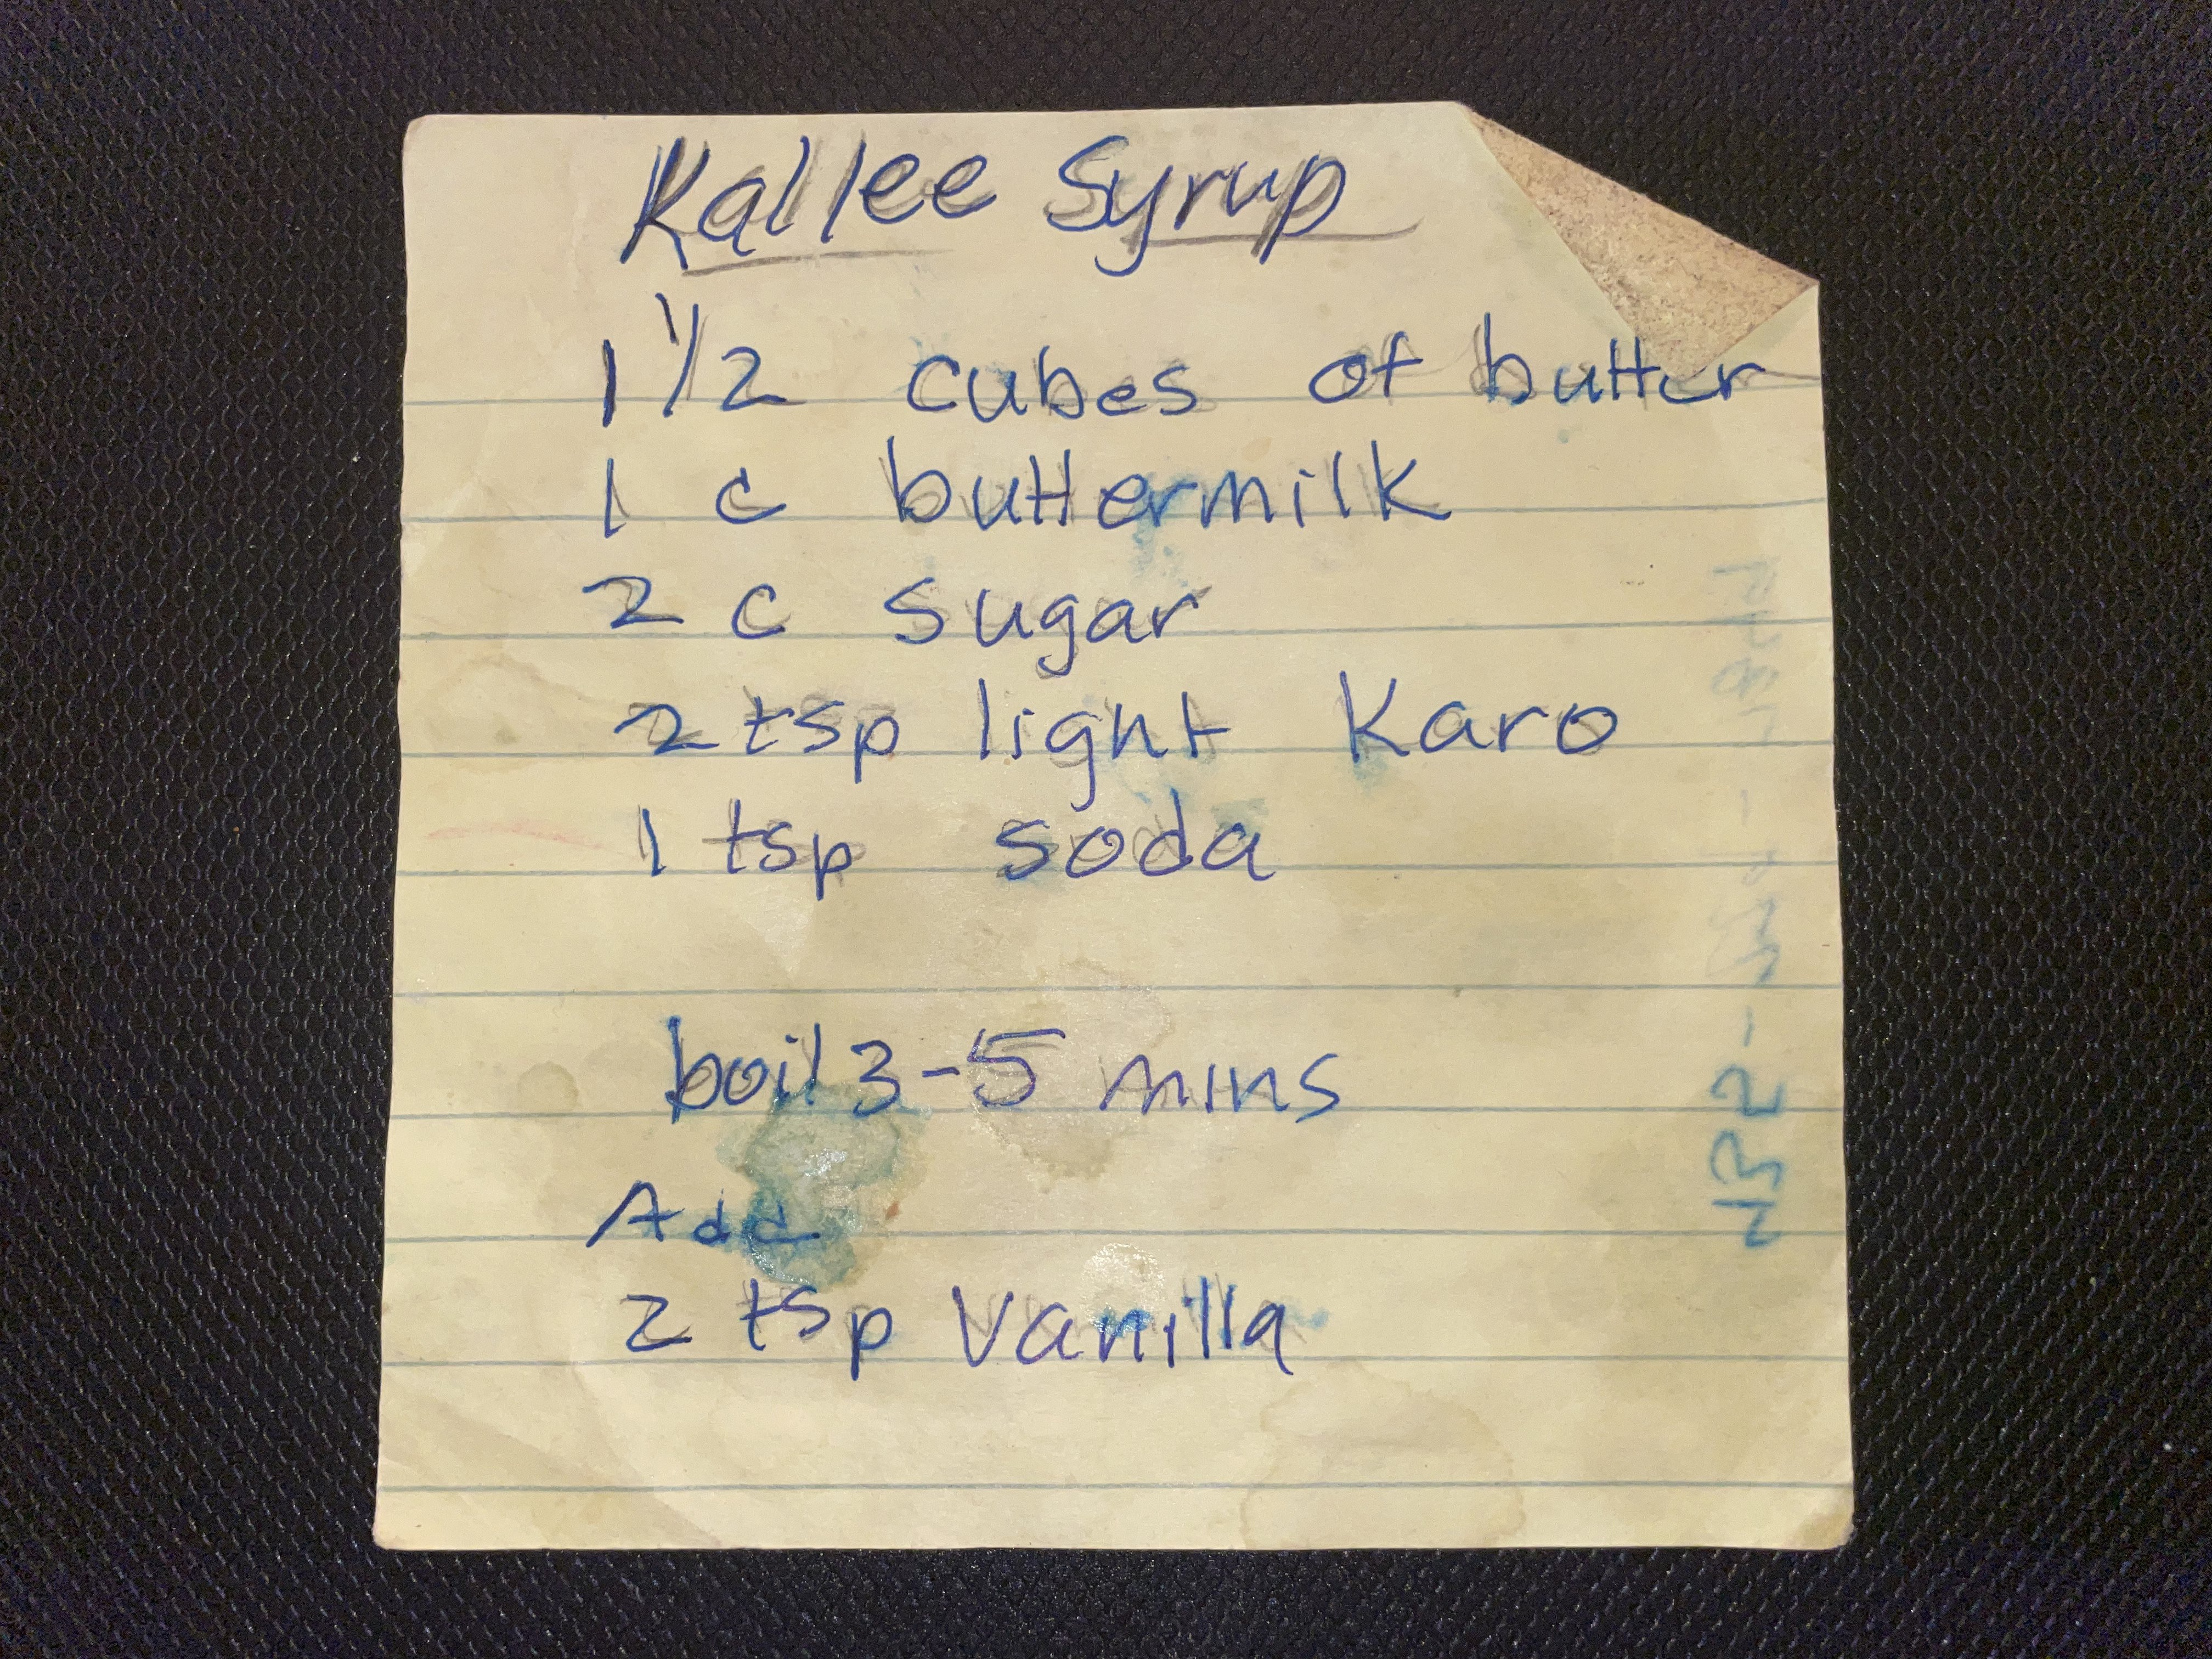 Kallee Syrup
1 1/2 cubes of butter
1 c buttermilk
2 c sugar
2 tsp light Karo
1 tsp soda
boil 3-5 mins
Add
2 tsp Vanilla